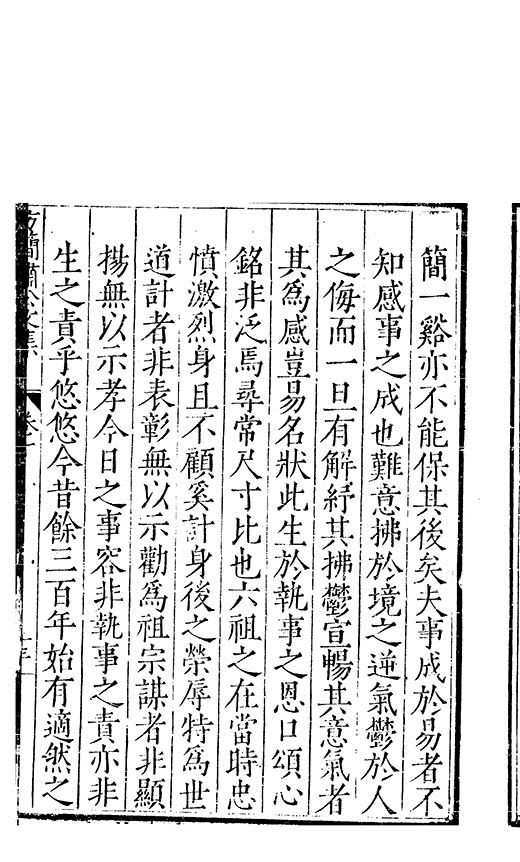 簡一谿亦不能保其後矣夫事成於易者不
知感事之成也難意拂於境之逆氣鬱於人
之侮而一旦有解紓其拂鬱宣暢其意氣者
其為感豈易名狀此生於執事之恩口頌心
銘非泛焉尋常尺寸比也六祖之在當時忠
憤激烈身且不顧奚計身後之榮辱特為世
道計者非表彰無以示勸為祖宗謀者非顯
揚無以示孝今日之事容非執事之責亦非
生之責乎悠悠今昔餘三百年始有適然之
方簡肅公文集
卷